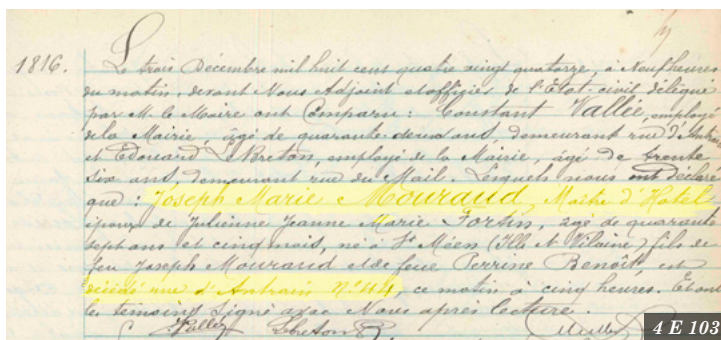 1816.
Le trois Décembre mil huit cent quatre vingt quatorze, à Neuf heures
du matin, devant Nous Adjoint et officier de l'Etat-civil délégué
par M. le Maire ont Comparu : Constant Vallée, employé
de la Mairie, âgé de quarante deux ans, demeurant rue d'Antrain
et Edouard Le Breton, employé de la Mairie, âgé de trente
six ans demeurant rue du Mail. Lesquels nous ont déclaré
que : Joseph Marie Mouraud, Maître d'Hôtel,
époux de Julienne Jeanne Marie Fortin, âgé de quarante
sept ans et cinq mois, né à St Méen (Ille et Vilaine) fils de
feu Joseph Mouraud et de feue Perrine Benoît, est
décédé rue d'Antrain Nº 44, ce matin à cinq heures. Et ont
les témoins signé avec Nous après lecture.
Vallée Lebreton
4 E 103